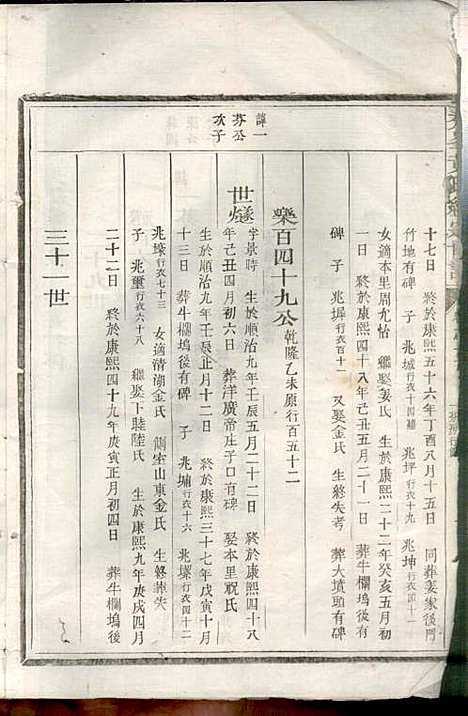 十七日 終於康熙五十六年丁酉八月十五日 同葬姜家後門
竹地有碑 子 兆城行衣四十四繼 兆坪行衣十九 兆坤行衣
女適本里周允怙 繼娶姜氏 生於康熙二十二年癸亥五月初
一日 終於康熙四十八年己丑五月二十一日 葬牛欄塢後有
碑 子 兆墀行衣百十一 又娶金氏 生終失考 葬大墳頭有碑
樂百四十九公乾隆乙未原行百五十二
諱一
芬公
次子
世燧字景時 生於順治九年壬辰五月二十二日 終於康熙四十八
年己丑四月初六日 葬洋廣帝庄子口有碑 娶本里祝氏
生於順治九年壬辰正月十二日 終於康熙三十七年戊寅十月
十三日 葬牛欄塢後有碑 子 兆埔行衣十六 兆 行衣四十二
兆 行衣七十三 女適清湖金氏 側室山東金氏 生終葬失
子 兆璽行衣六十八 繼娶下睦陸氏 生於康熙九年庚戌四月
二十二日 終於康熙四十九年庚寅正月初四日 葬牛欄塢後
三十一世